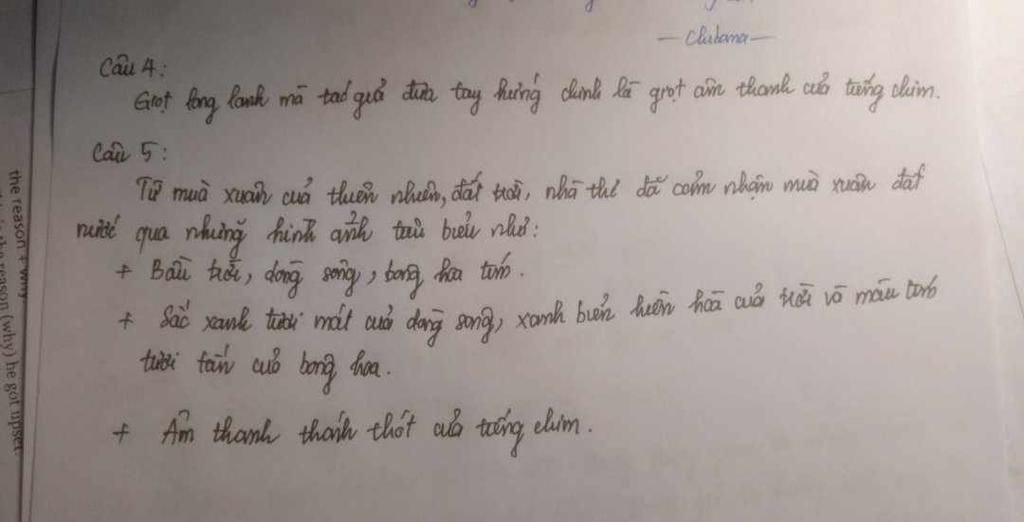 — Chibana —
Câu 4:
Giọt long lanh mà tác giả đưa tay hứng chính là giọt âm thanh của tiếng chim.
Câu 5:
Từ mùa xuân của thiên nhiên, đất trời, nhà thơ đã cảm nhận mùa xuân đất
nước qua những hình ảnh tiêu biểu như:
+ Bầu trời, dòng sông, bông hoa tím.
+ Sắc xanh tươi mát của dòng sông, xanh biển hiền hoà của trời và màu tím
tươi tắn của bông hoa.
+ Âm thanh thánh thót của tiếng chim.
the reason + why
the reason (why) he got upset